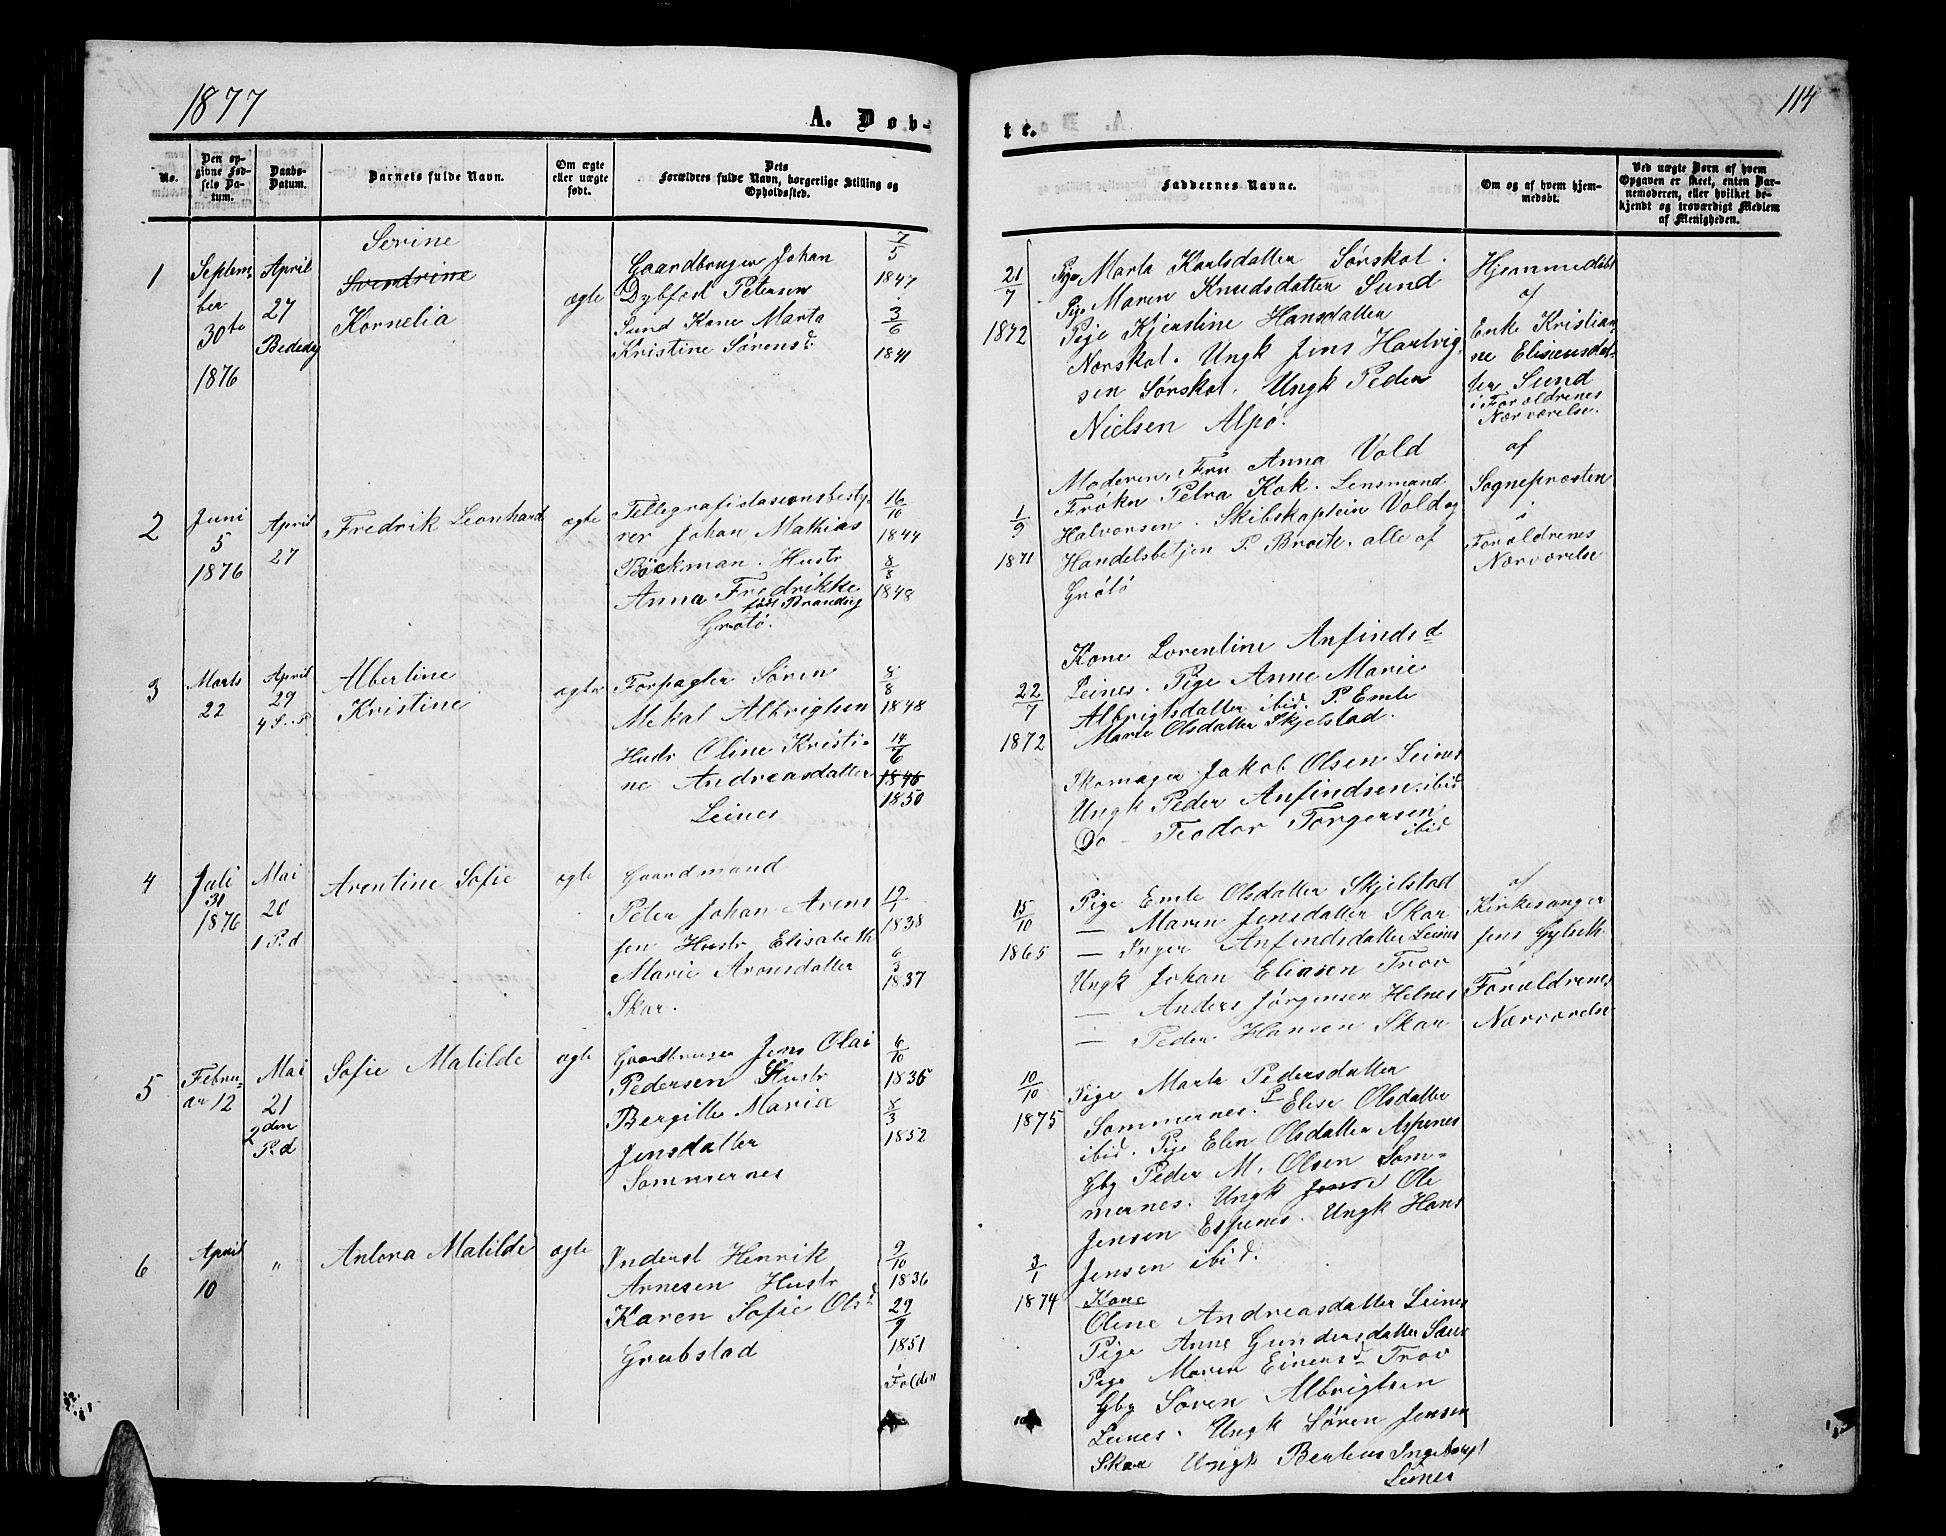 1877
A. Døb-
No.
Den op-
givne Fød-
sels Da-
tum.
Daabs-
Datum.
Barnets fulde Navn.
Om ægte
eller uægte
født.
Dets
Forældres fulde Navn, borgerlige Stilling og
Opholdssted.
1
Septem-
ber
30te
1876
April
27
Bededag
Serine
Svendrine
Kornelia
ægte
Gaardbruger Johan
Dybfest Petersen
Sund Kone Marta
Kristine Sørensd.
7/5
1847
3/6
1841
2
Juni
5
1876
April
27
Fredrik Leonhard
ægte
Tellegrafistasionsbesty-
rer Johan Mathias
Böckman. Hustr
Anna Fredrikke
født Brandvig
Grøtø.
16/10
1844
8/8
1848
3
Marts
22
April
29
4 S. P.
Albertine
Kristine
ægte
Forpagter Søren
Mekal Albrigtsen
Hustr Oline Kristi-
ne Andreasdatter
Leines
8/8
1848
14/6
1846
1850
4
Juli
31
1876
Mai
20
1 P.d
Arentine Sofie
ægte
Gaardmand
Peter Johan Arens
sen Hustr Elisabeth
Marie Aronsdatter
Skar.
12/7
1838
6/3
1837
5
Febru-
ar 12
Mai
21
2den
P.d
Sofie Matilde
ægte
Gaardbruger Jens Olai
Pedersen Hustr
Bergitte Maria
Jensdatter
Sommernes
6/10
1836
8/3
1852
6
April
10
"
Antora Matilde
ægte
Inderst Henrik
Arnesen Hustr
Karen Sofie Olsd
Grubstad
9/10
1836
29/9
1851
i
Folden
114
te.
Faddernes Navne.
Om og af hvem hjem-
medøbt.
Ved uægte Børn af hvem
Opgaven er skeet, enten Bar-
nemoderen, eller hvilket be-
kjendt og troværdigt Medlem
af Menigheden.
21/7
1872
Pige Marta Karlsdatter Sørskot.
Pige Maren Knudsdatter Sund
Pige Kjerstine Hansdatter
Norskot. Ungk Jens Hartvig-
sen Sørskot. Ungk Peder
Nielsen Alpø.
Hjemmedøbt
af
Enke Kristian-
ne Elisensdat-
ter Sund
i Forældrenes
Nærværelse.
1/9
1871
Moderen, Fru Anna Vold
Frøkn Petra Kok. Lensmand
Halvorsen. Skibskaptein Vold og
Handelsbetjen P. Broch. alle af
Grøtø
af
Sogneprosten
i
Forældrenes
Nærværelse
22/7
1872
Kone Lorentine Anfindsd
Leines. Pige Anne Marie
Albrigtsdatter ibid. P. Emte
Marie Olsdatter Skjelstad.
Skomager Jakob Olsen Leines
Ungk Peder Anfindsen ibid
Do - Teodor Torgersen
ibid
15/10
1865
Pige Emte Olsdatter Skjelstad
— Maren Jensdatter Skar
— Inger Anfindsdatter Leines
Ungk Johan Eliasen Trov
— Anders Jørgensen Helnes
— Peder Hansen Skar
af
Kirkesanger
Jens Gylseth
i
Forældrenes
Nærværelse
10/10
1875
Pige Marta Pedersdatter
Sommernes. P Elise Olsdatter
ibid. Pige Elen Olsdatter Aspenes
Gbg Peder M. Olsen Som-
mernes. Ungk Jens Ole
Jensen Espenes. Ungk Hans
Jensen ibid.
3/1
1874
Kone
Oline Andreasdatter Leines
Pige Anne Gundersdatter
Pige Maren Einersd Trov
Gbg Søren Albrigtsen
Leines. Ungk Søren Jensen
Skar Ungk Benteus
Leines